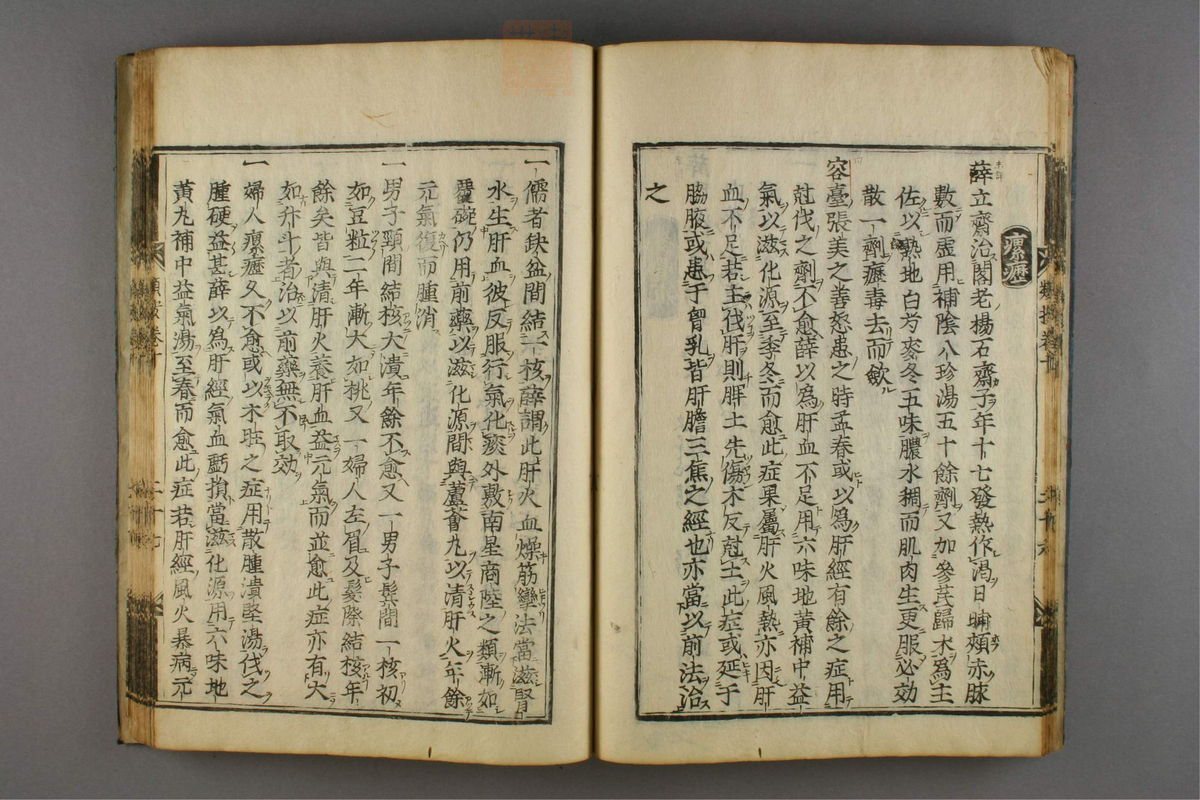 瘰癧
薛立齋治閣老楊石齋子年十七發熱作渴日晡頰赤脉
數而虛用補陰八珍湯五十餘劑又加參芪歸朮爲主
佐以熟地白芍麥冬五味膿水稠而肌肉生更服必効
散一劑癧毒去而斂
容臺張美之善怒患之時孟春或以爲肝經有餘之症用
尅伐之劑不愈薛以爲肝血不足用六味地黃補中益
氣以滋化源至季冬而愈此症果屬肝火風熱亦因肝
血不足若主伐肝則脾土先傷木反尅土此症或延于
脇腋或患于胷乳皆肝膽三焦之經也亦當以前法治
之
一儒者缺盆間結一核薛謂此肝火血燥筋攣法當滋腎
水生肝血彼反服行氣化痰外敷南星商陸之類漸如
覆碗仍用前藥以滋化源間與蘆薈丸以清肝火年餘
元氣復而腫消
一男子頸間結核大潰年餘不愈又一男子鬓間一核初
如豆粒二年漸大如桃又一婦人左眉及髮際結核年
餘矣皆與清肝火養肝血益元氣而並愈此症亦有大
如升斗者治以前藥無不取効
一婦人瘰癧久不愈或以木旺之症用散腫潰堅湯伐之
腫硬益甚薛以爲肝經氣血虧損當滋化源用六味地
黃丸補中益氣湯至春而愈此症若肝經風火暴病元